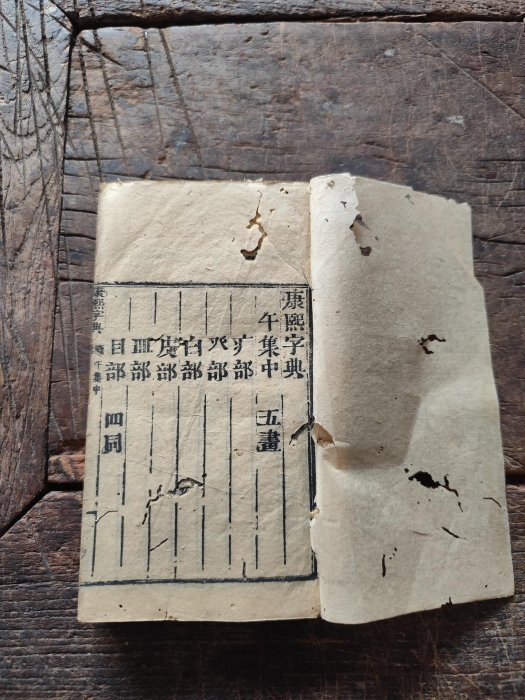 康熙字典
午集中 五畫
疒部
癶部
白部
皮部
皿部
目部 罒同
康熙字典 午集中